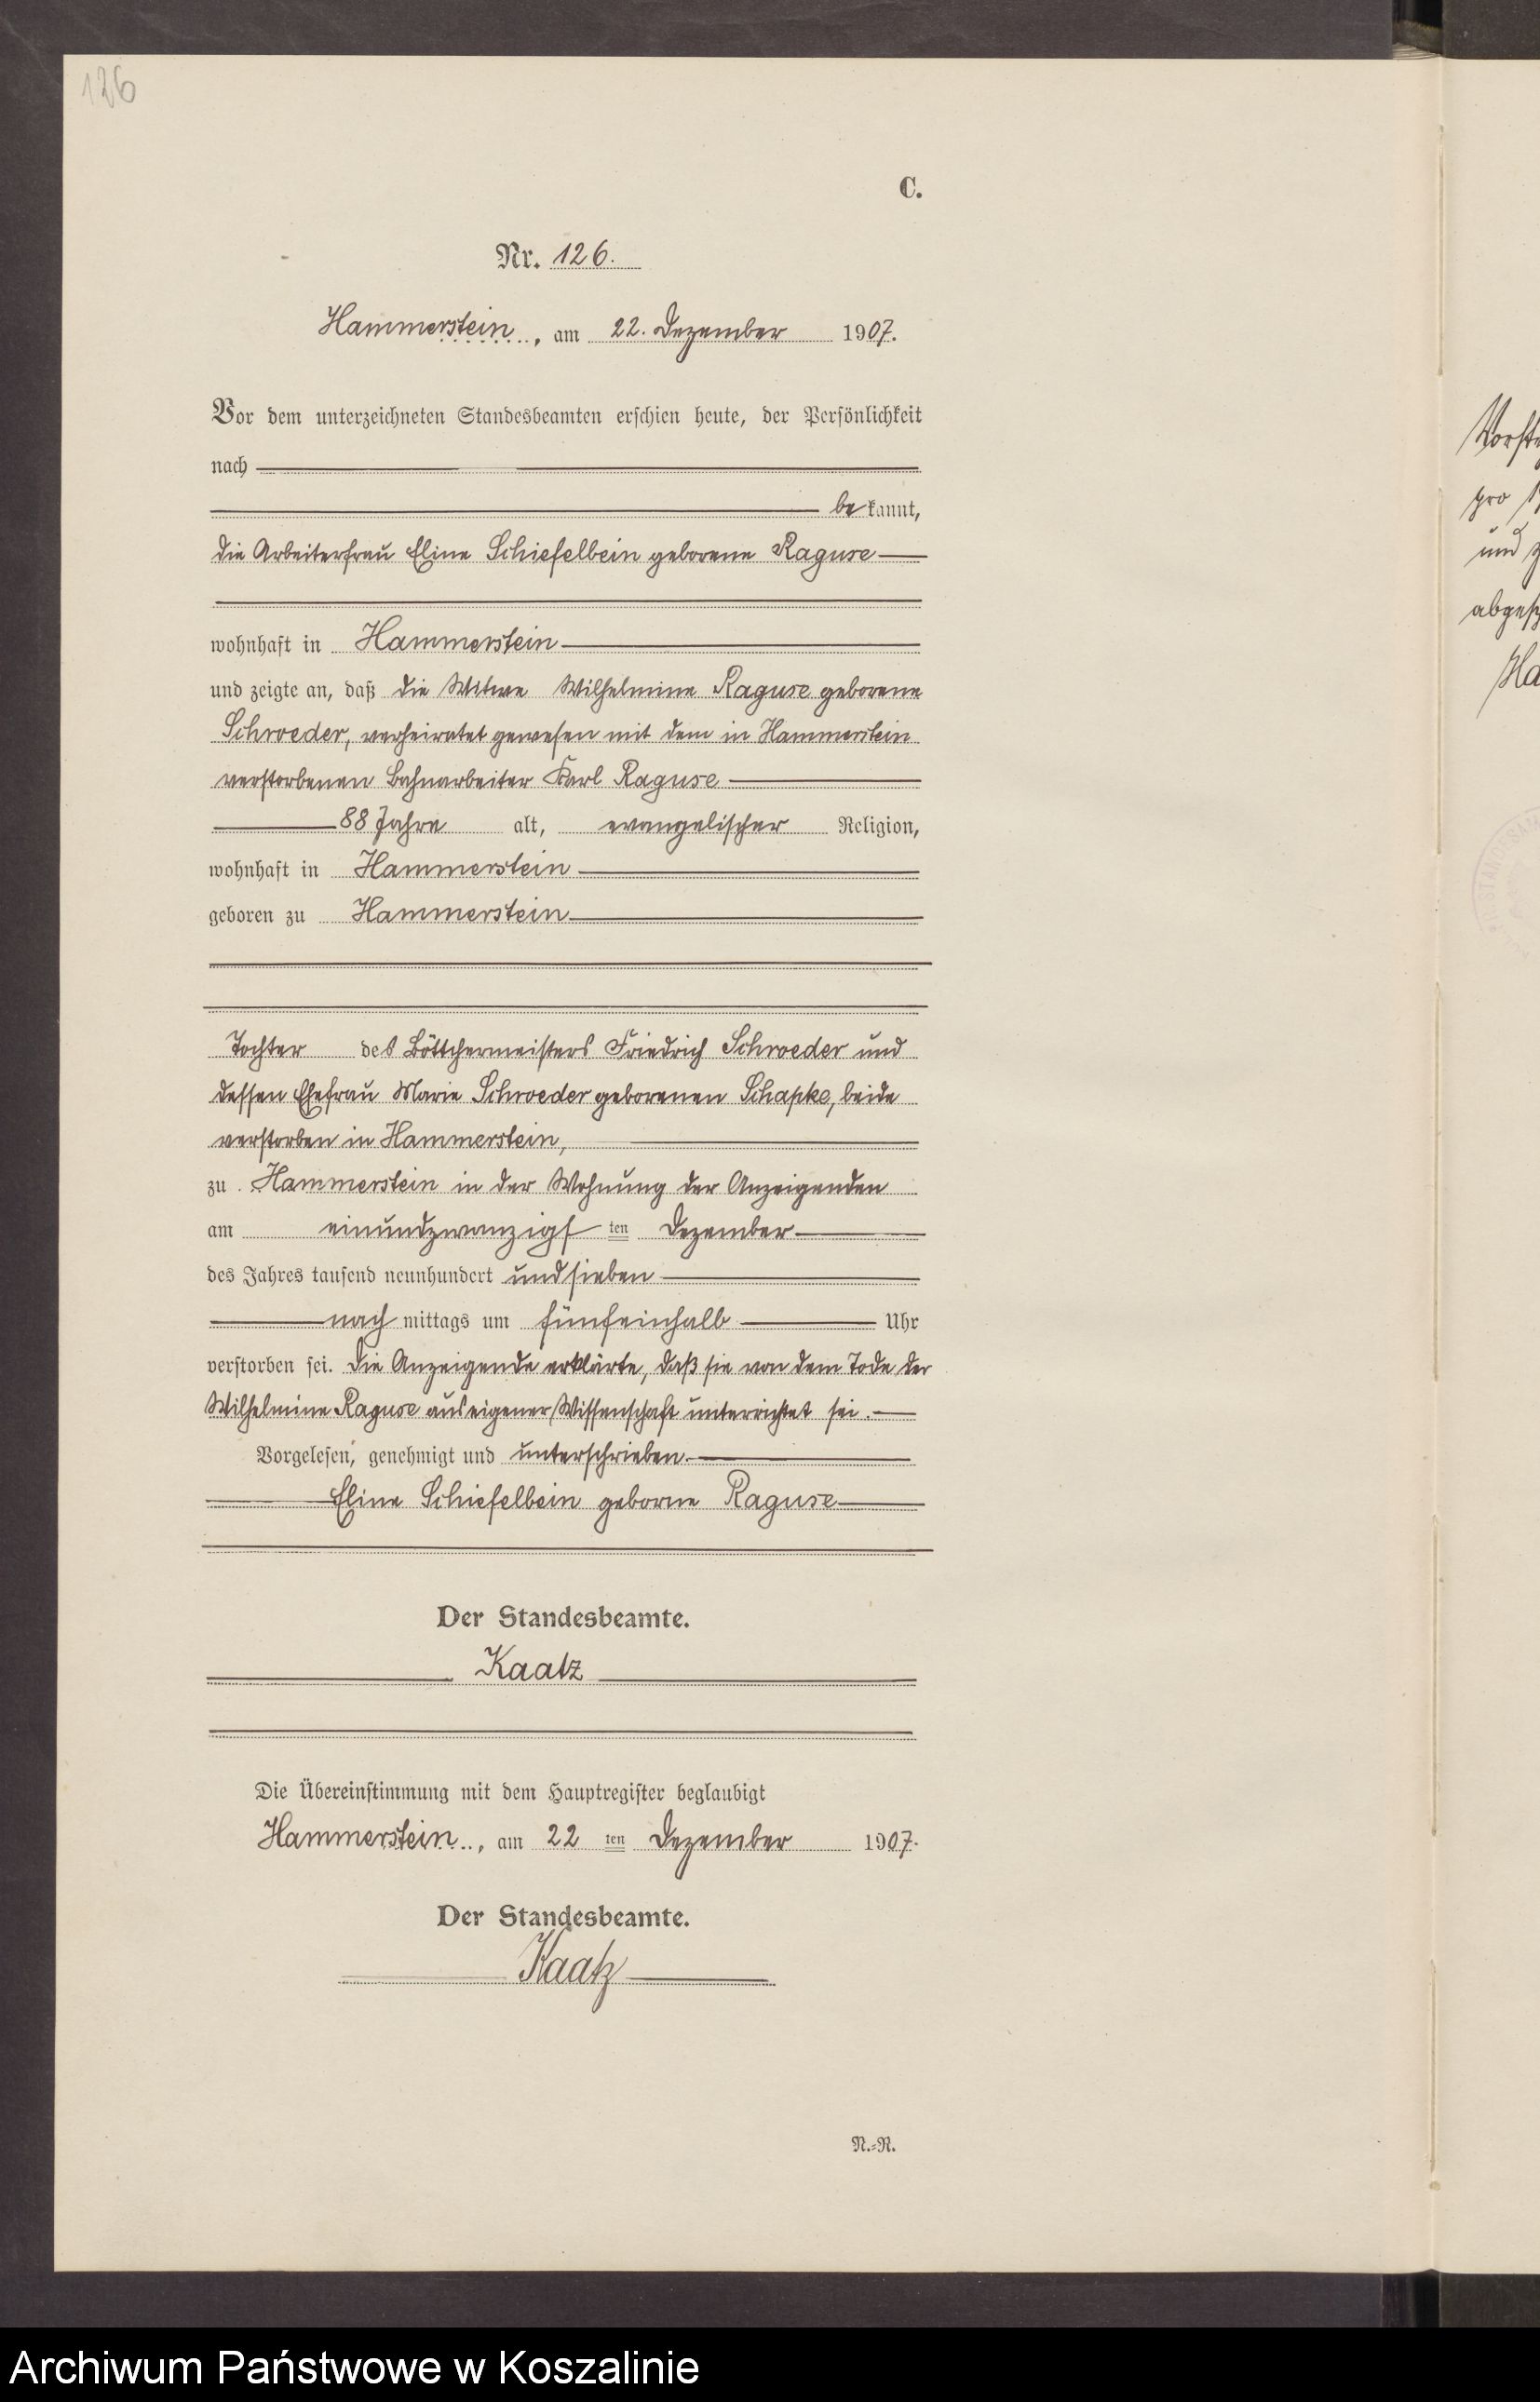 126
C.
Nr. 126.
Hammerstein, am 22. Dezember 1907.
Vor dem unterzeichneten Standesbeamten erschien heute, der Persönlichkeit
nach
be kannt,
die Arbeiterfrau Eline Schiefelbein geborene Raguse
wohnhaft in Hammerstein
und zeigte an, daß die Witwe Wilhelmine Raguse geborene
Schroeder, verheiratet gewesen mit dem in Hammerstein
verstorbenen Bahnarbeiter Karl Raguse
88 Jahre alt, evangelischer Religion,
wohnhaft in Hammerstein
geboren zu Hammerstein
Tochter des Böttchermeisters Friedrich Schroeder und
dessen Ehefrau Marie Schroeder geborenen Schapke, beide
verstorben in Hammerstein,
zu Hammerstein in der Wohnung der Anzeigenden
am einundzwanzigs ten Dezember
des Jahres tausend neunhundert und sieben
nach mittags um fünfeinhalb Uhr
verstorben sei. Die Anzeigende erklärte, daß sie von dem Tode der
Wilhelmine Raguse aus eigener Wissenschaft unterrichtet sei.
Vorgelesen, genehmigt und unterschrieben
Eline Schiefelbein geborne Raguse
Der Standesbeamte.
Kaatz
Die Übereinstimmung mit dem Hauptregister beglaubigt
Hammerstein, am 22 ten Dezember 1907.
Der Standesbeamte.
Kaatz
N.-R.
pro
und
Archiwum Państwowe w Koszalinie